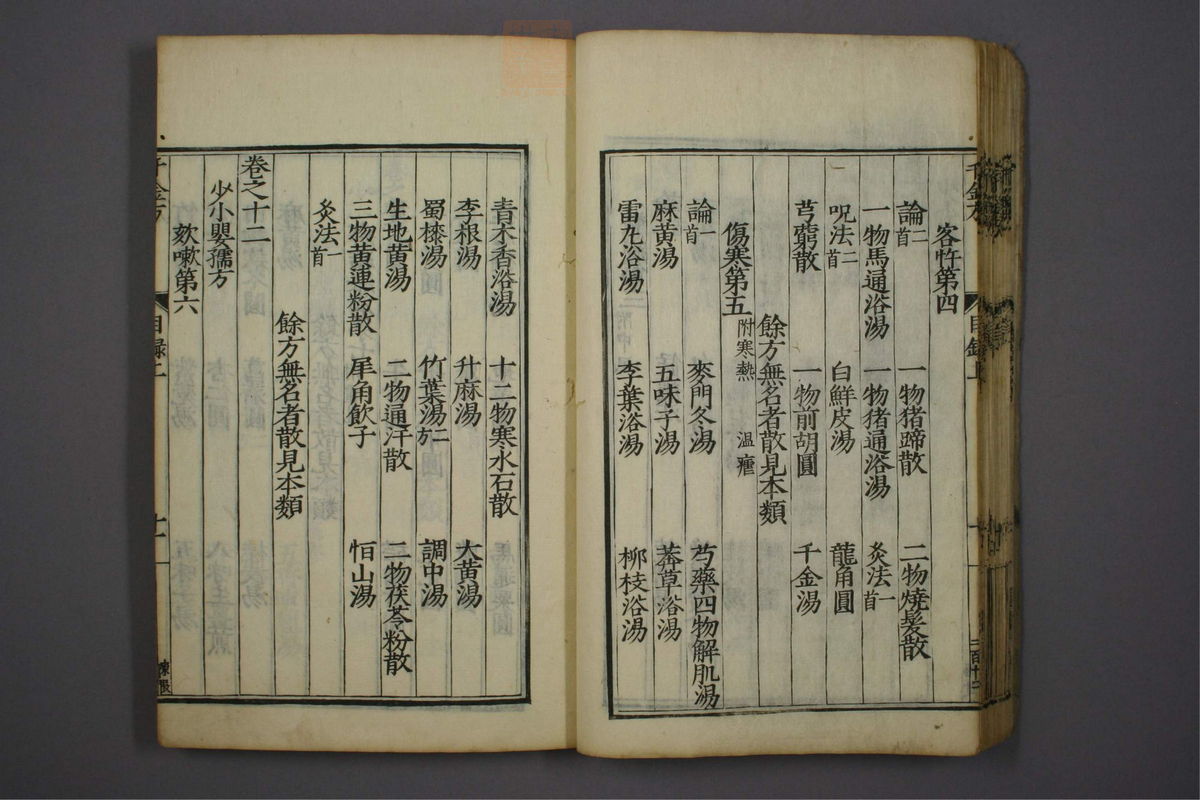 客忤第四
論二首 一物猪蹄散 二物燒髮散
一物馬通浴湯 一物猪通浴湯 灸法一首
呪法二首 白鮮皮湯 龍角圓
芎藭散 一物前胡圓 千金湯
餘方無名者散見本類
傷寒第五 附寒熱 溫瘧
論一首 麥門冬湯 芍藥四物解肌湯
麻黃湯 五味子湯 莽草浴湯
雷丸浴湯 李葉浴湯 柳枝浴湯
青木香浴湯 十二物寒水石散
李根湯 升麻湯 大黃湯
蜀椽湯 竹葉湯二方 調中湯
生地黃湯 二物通汗散 二物茯苓粉散
三物黃連粉散 犀角飲子 恒山湯
灸法一首
餘方無名者散見本類
卷之十二
少小嬰孺方
欬嗽第六
千金方 目録二